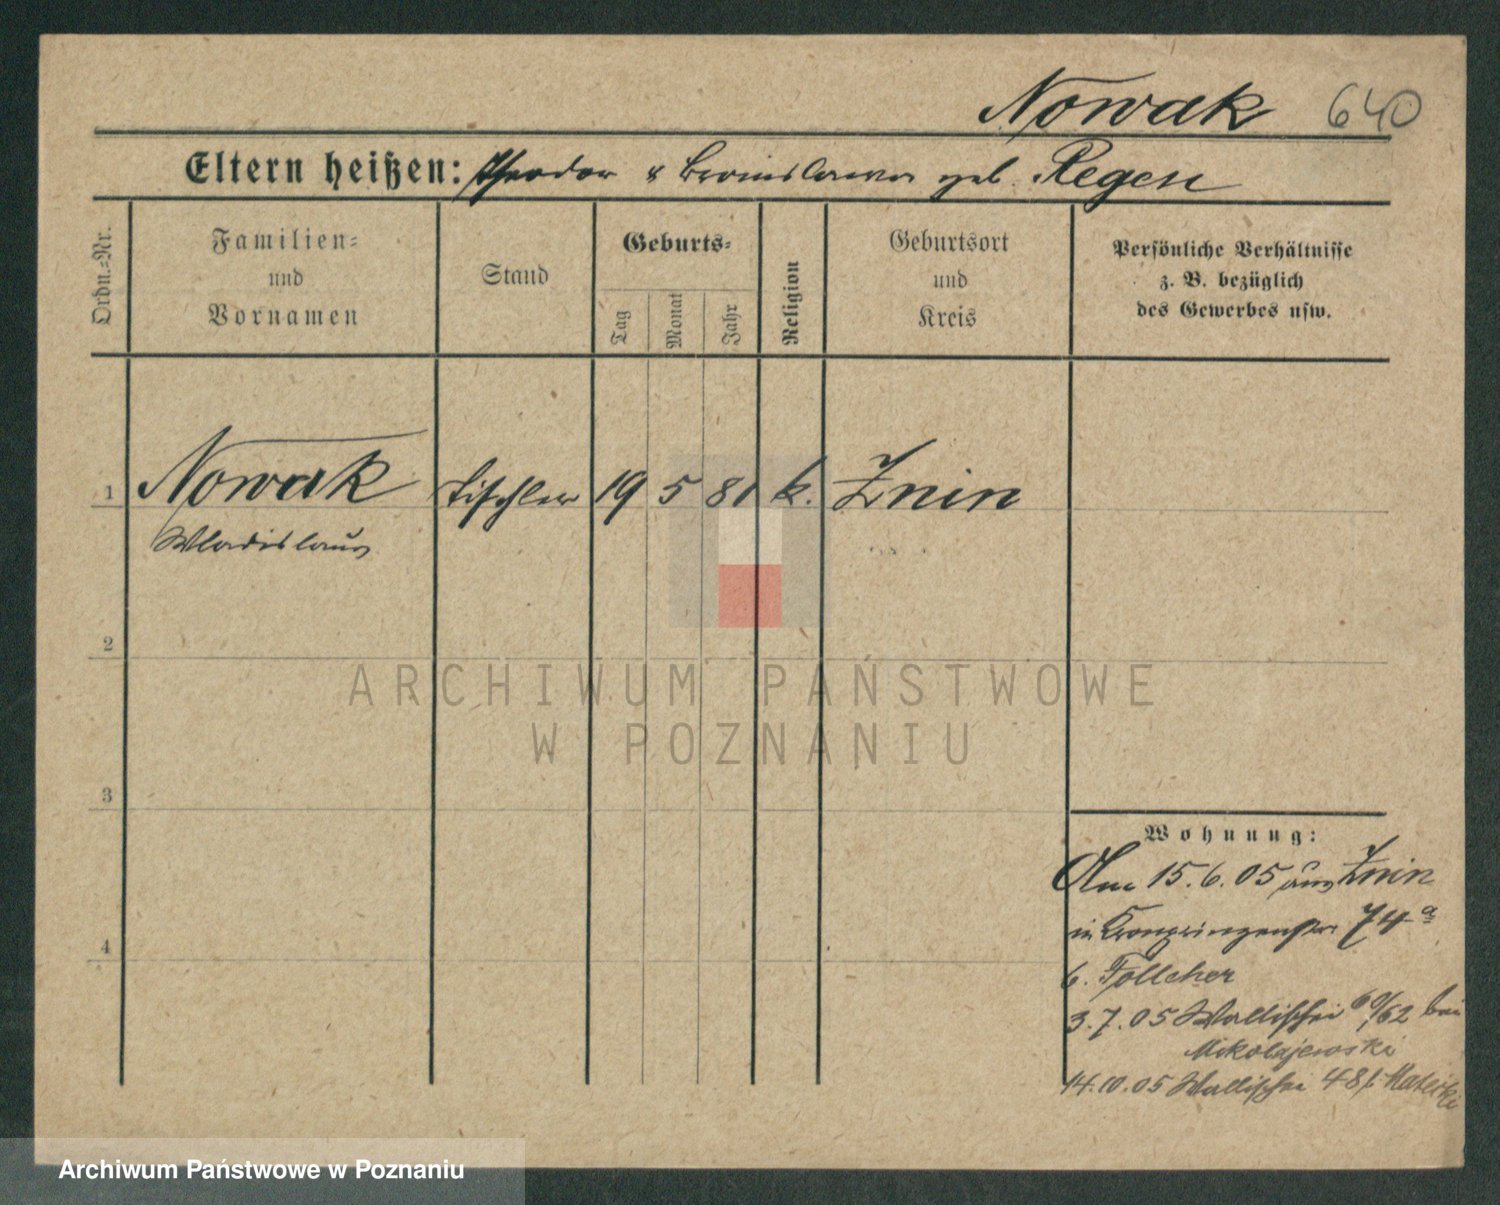 Nowak 640
Eltern heißen: Theodor u Bronislawa geb. Regen
Ordn.-Nr.
Familien-
und
Vornamen
Stand
Geburts-
Tag
Monat
Jahr
Religion
Geburtsort
und
Kreis
Persönliche Verhältnisse
z. B. bezüglich
des Gewerbes usw.
1 Nowak Tischler 19 5 81 k. Znin
Wladislaus
2
3
4
Wohnung:
Am 15.6.05 aus Znin
in Kronprinzenstr. 74a
b. Follcher
3.7.05 Wallischei 60/62 bei
Mikolajewski
14.10.05 Wallischei 48 b. Matecki
ARCHIWUM PAŃSTWOWE
W POZNANIU
Archiwum Państwowe w Poznaniu